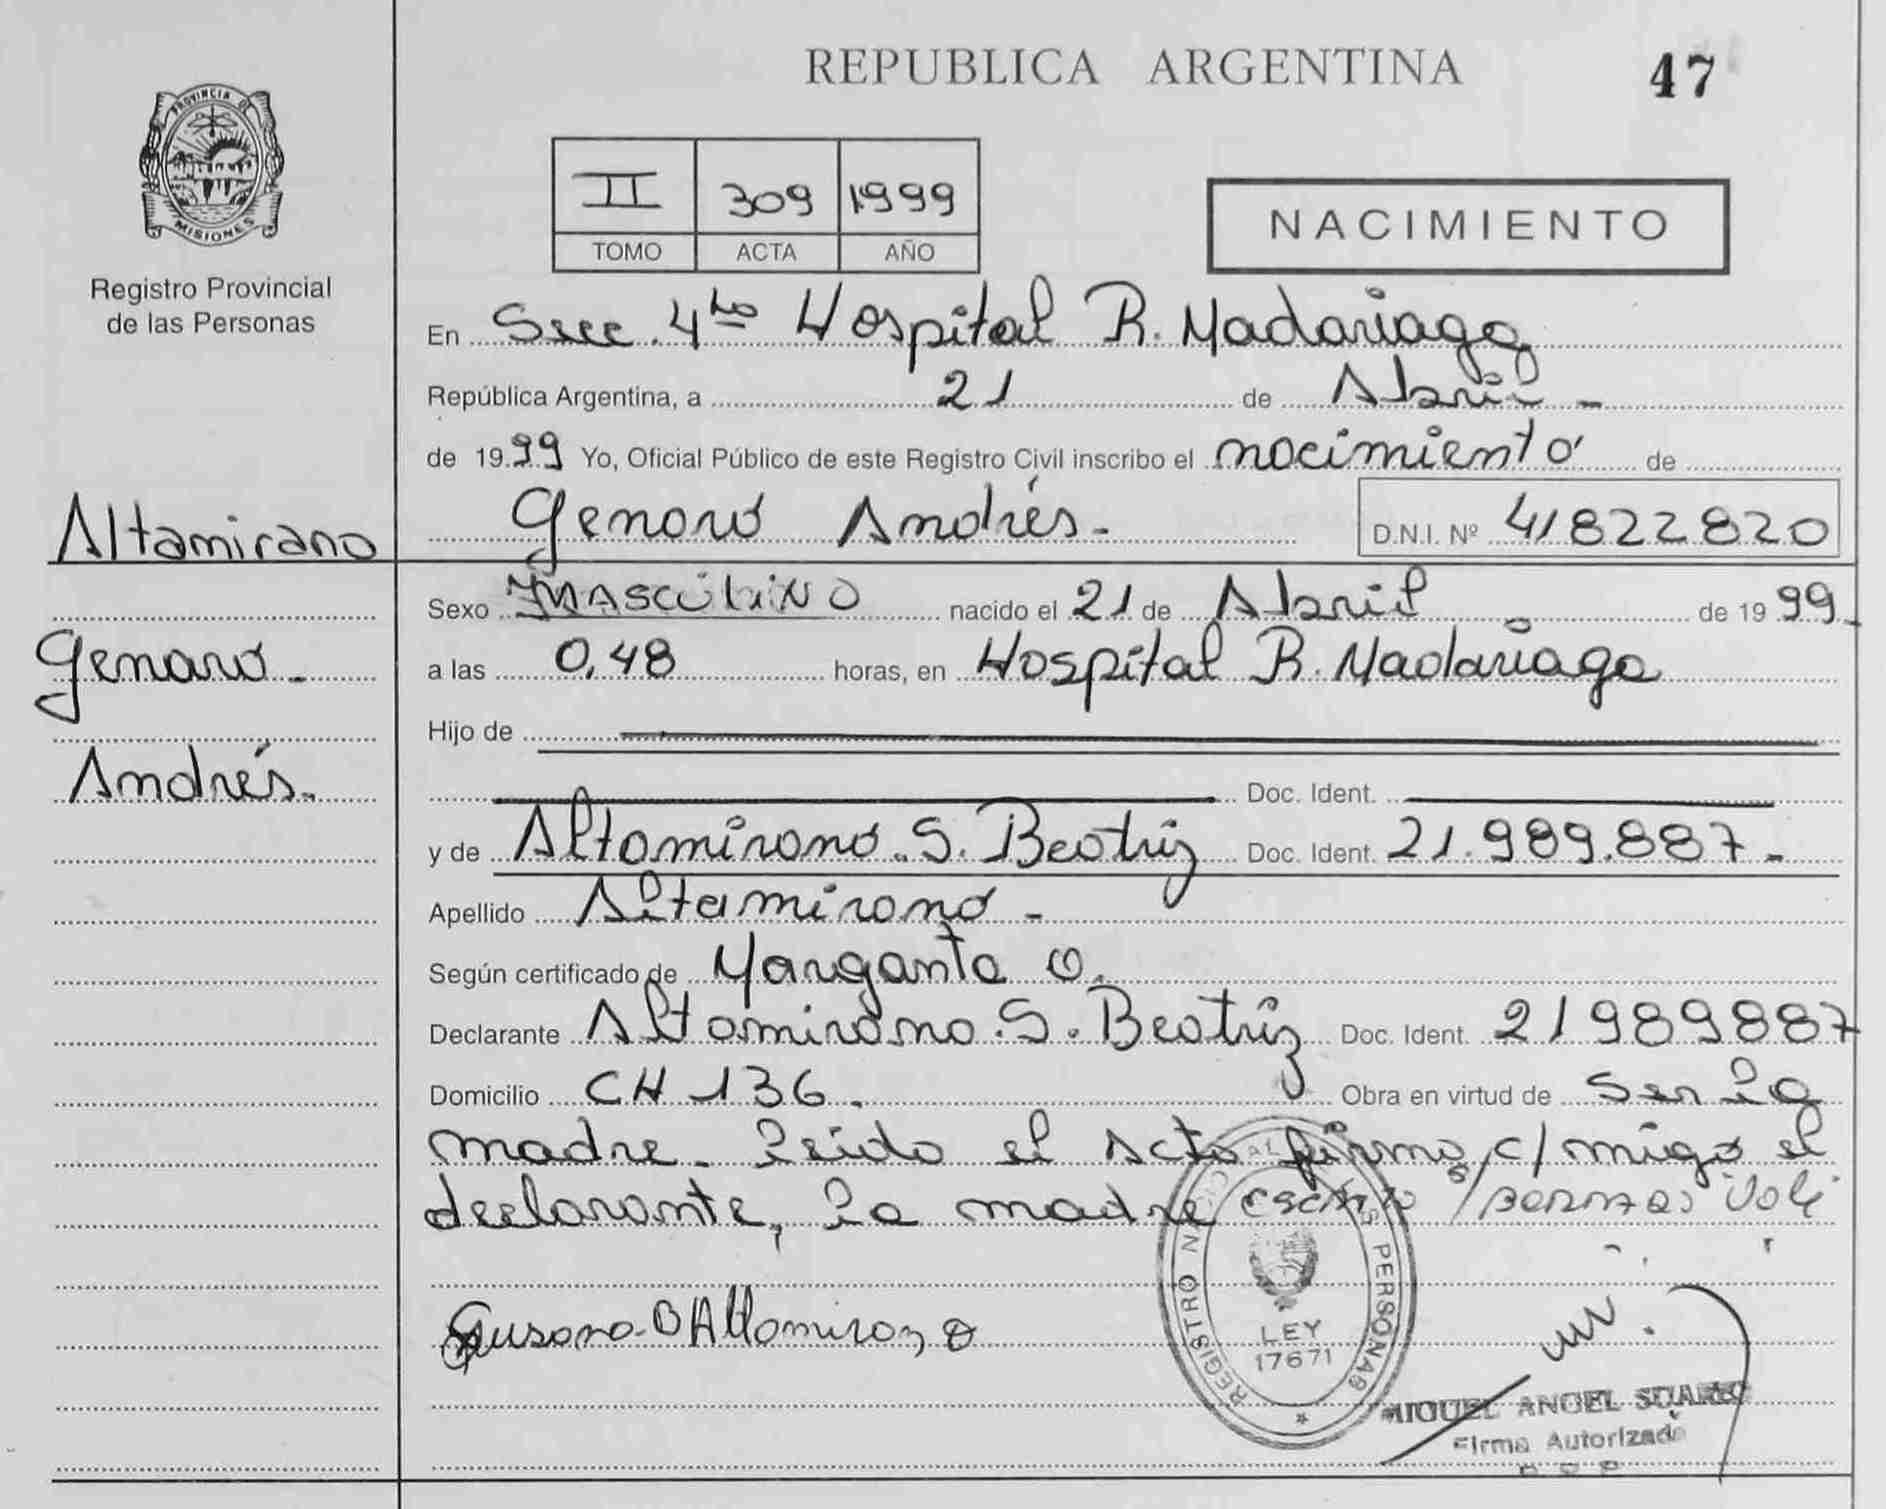 REPUBLICA ARGENTINA
47
PROVINCIA DE
MISIONES
Registro Provincial
de las Personas
II 309 1999
TOMO ACTA AÑO
NACIMIENTO
En Secc. 4ta Hospital R. Madariaga
República Argentina, a 21 de Abril -
de 1999 Yo, Oficial Público de este Registro Civil inscribo el nacimiento de
Altamirano
Genaro Andrés. D.N.I. Nº 41822820
Sexo MASCULINO nacido el 21 de Abril de 1999
Genaro -
a las 0,48 horas, en Hospital R. Madariaga
Hijo de
Andrés.
Doc. Ident.
y de Altamirano. S. Beatriz Doc. Ident. 21.989.887. -
Apellido Altamirano -
Según certificado de Margarita O.
Declarante Altamirano. S. Beatriz Doc. Ident. 21989887
Domicilio CH 136. Obra en virtud de Ser la
madre. Leido el acta firma c/migo el
declarante, la madre
Susana B Altamirano
REGISTRO NACIONAL DE LAS PERSONAS
LEY
17671
MIGUEL ANGEL SUAREZ
Firma Autorizada